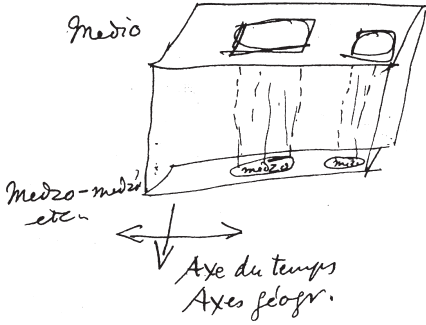 Medio
medzo
medi
Medzo-medzó
etc.
Axe du temps
Axes géogr.